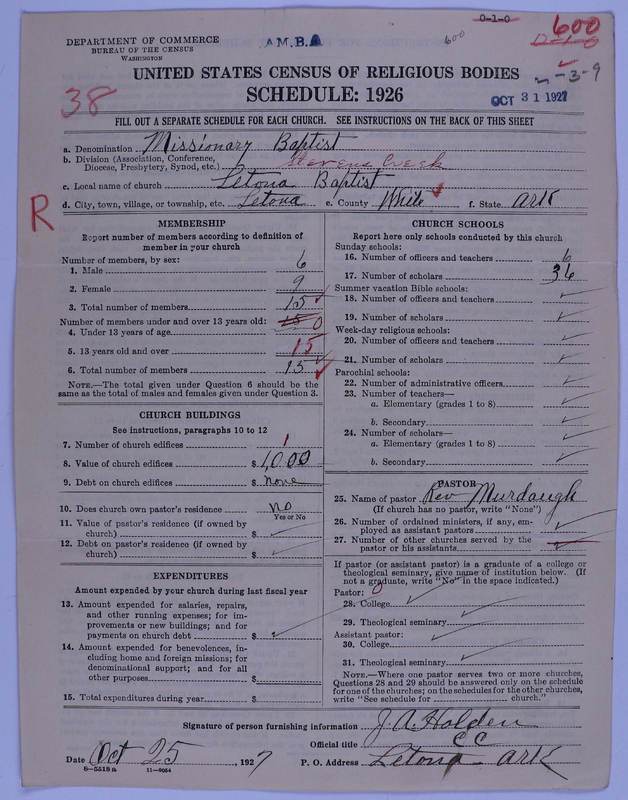 0-1-0
600
DEPARTMENT OF COMMERCE
BUREAU OF THE CENSUS
WASHINGTON
A.M.B.A
600
UNITED STATES CENSUS OF RELIGIOUS BODIES
SCHEDULE: 1926
-3-9
OCT 31 1927
38
FILL OUT A SEPARATE SCHEDULE FOR EACH CHURCH. SEE INSTRUCTIONS ON THE BACK OF THIS SHEET
a. Denomination Missionary Baptist
b. Division (Association, Conference, Diocese, Presbytery, Synod, etc.) Stevens Creek
c. Local name of church Letona Baptist
d. City, town, village, or township, etc. Letona e. County White f. State Ark
R
MEMBERSHIP
Report number of members according to definition of
member in your church
Number of members, by sex:
1. Male 6
2. Female 9
3. Total number of members 15
Number of members under and over 13 years old:
4. Under 13 years of age 15 0
5. 13 years old and over 15
6. Total number of members 15
NOTE.—The total given under Question 6 should be the
same as the total of males and females given under Question 3.
CHURCH BUILDINGS
See instructions, paragraphs 10 to 12
7. Number of church edifices 1
8. Value of church edifices $ 1,000
9. Debt on church edifices $ none
10. Does church own pastor's residence no
Yes or No
11. Value of pastor's residence (if owned by
church) $
12. Debt on pastor's residence (if owned by
church) $
EXPENDITURES
Amount expended by your church during last fiscal year
13. Amount expended for salaries, repairs,
and other running expenses; for im-
provements or new buildings; and for
payments on church debt $
14. Amount expended for benevolences, in-
cluding home and foreign missions; for
denominational support; and for all
other purposes $
15. Total expenditures during year $
CHURCH SCHOOLS
Report here only schools conducted by this church
Sunday schools:
16. Number of officers and teachers 6
17. Number of scholars 36
Summer vacation Bible schools:
18. Number of officers and teachers
19. Number of scholars
Week-day religious schools:
20. Number of officers and teachers
21. Number of scholars
Parochial schools:
22. Number of administrative officers
23. Number of teachers—
a. Elementary (grades 1 to 8)
b. Secondary
24. Number of scholars—
a. Elementary (grades 1 to 8)
b. Secondary
PASTOR
25. Name of pastor Rev Murdaugh
(If church has no pastor, write "None")
26. Number of ordained ministers, if any, em-
ployed as assistant pastors
27. Number of other churches served by the
pastor or his assistants
If pastor (or assistant pastor) is a graduate of a college or
theological seminary, give name of institution below. (If
not a graduate, write "No" in the space indicated.)
Pastor: 0
28. College
29. Theological seminary
Assistant pastor:
30. College
31. Theological seminary
NOTE.—Where one pastor serves two or more churches,
Questions 28 and 29 should be answered only on the schedule
for one of the churches; on the schedules for the other churches,
write "See schedule for church."
Signature of person furnishing information J. A. Holden
Official title CC
Date Oct 25, 1927 P. O. Address Letona Ark
8-5518a 11-9054